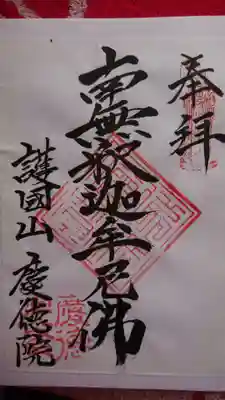 奉拝
南無釈迦牟尼佛
護國山 慶徳院